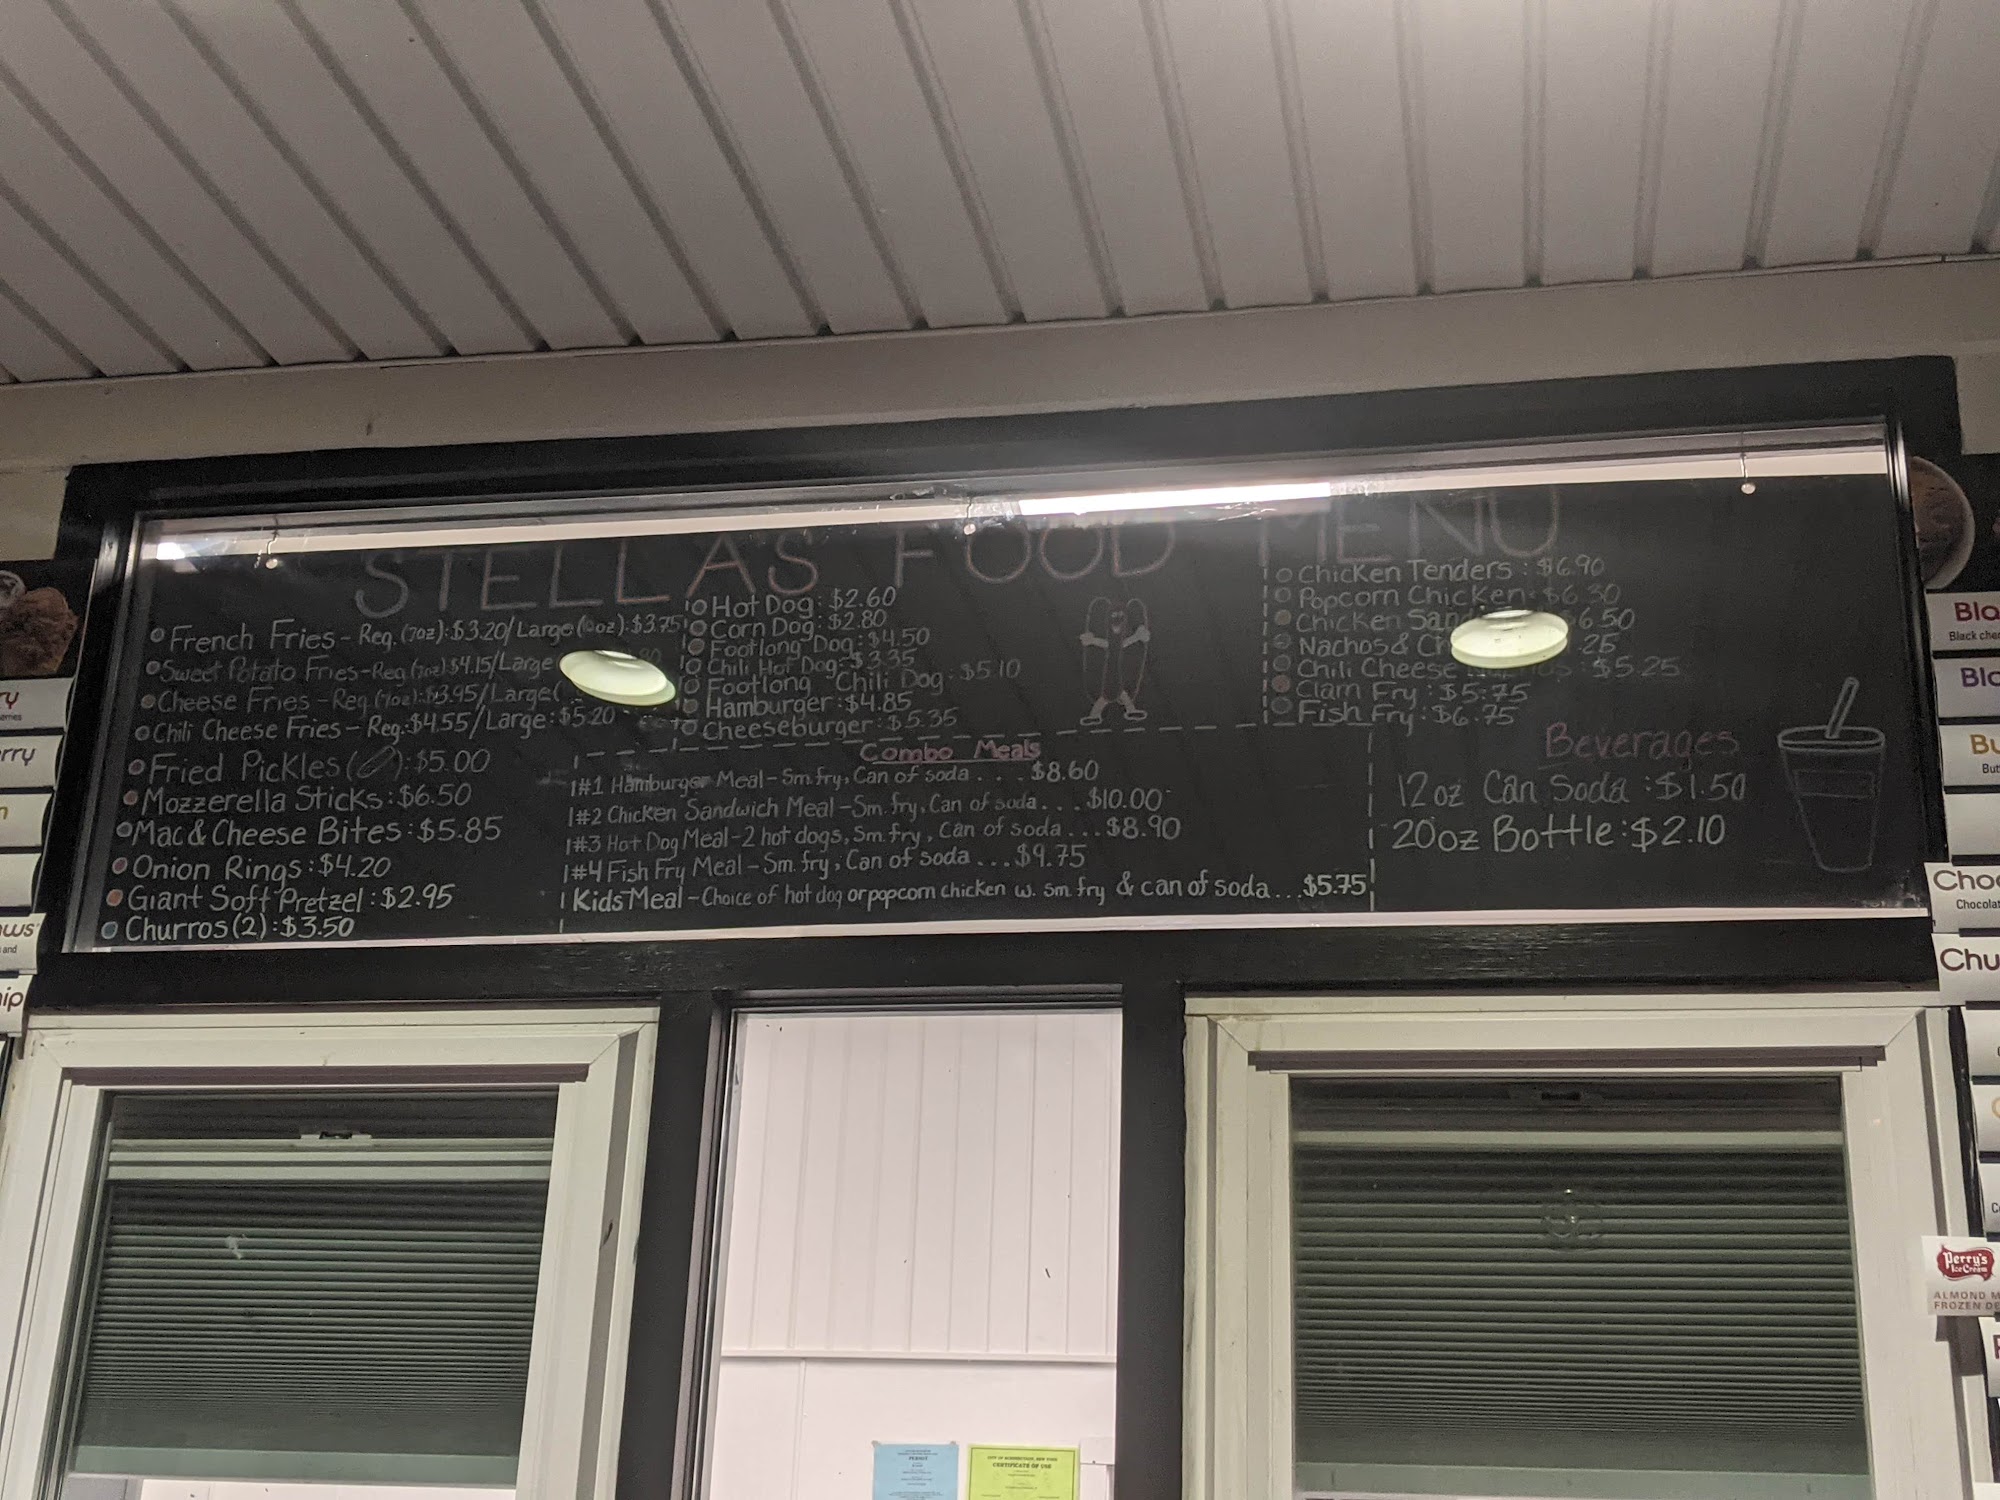 STELLAS FOOD MENU
French Fries - Reg. (7oz): $3.20/Large ( oz): $3.75
Sweet Potato Fries - Reg (7oz) $4.15/Large
Cheese Fries - Reg (7oz): $3.95/Large(
Chili Cheese Fries - Reg: $4.55/Large: $5.20
Fried Pickles ( ): $5.00
Mozzerella Sticks: $6.50
Mac & Cheese Bites: $5.85
Onion Rings: $4.20
Giant Soft Pretzel: $2.95
Churros (2): $3.50
Hot Dog: $2.60
Corn Dog: $2.80
Footlong Dog: $4.50
Chili Hot Dog: $3.35
Footlong Chili Dog: $5.10
Hamburger: $4.85
Cheeseburger: $5.35
Chicken Tenders: $6.90
Popcorn Chicken: $6.30
Chicken San 6.50
Nachos & Ch .25
Chili Cheese $5.25
Clam Fry: $5.75
Fish Fry: $6.75
Combo Meals
#1 Hamburger Meal - Sm. fry, Can of soda . . . $8.60
#2 Chicken Sandwich Meal - Sm. fry, Can of soda . . . $10.00
#3 Hot Dog Meal - 2 hot dogs, Sm. fry, Can of soda . . . $8.90
#4 Fish Fry Meal - Sm. fry, Can of soda . . . $9.75
Kids Meal - Choice of hot dog or popcorn chicken w. sm fry & can of soda . . . $5.75
Beverages
12oz Can Soda: $1.50
20oz Bottle: $2.10
Black
Perry's
Ice Cream
ALMOND
FROZEN
PERMIT
CERTIFICATE OF USE